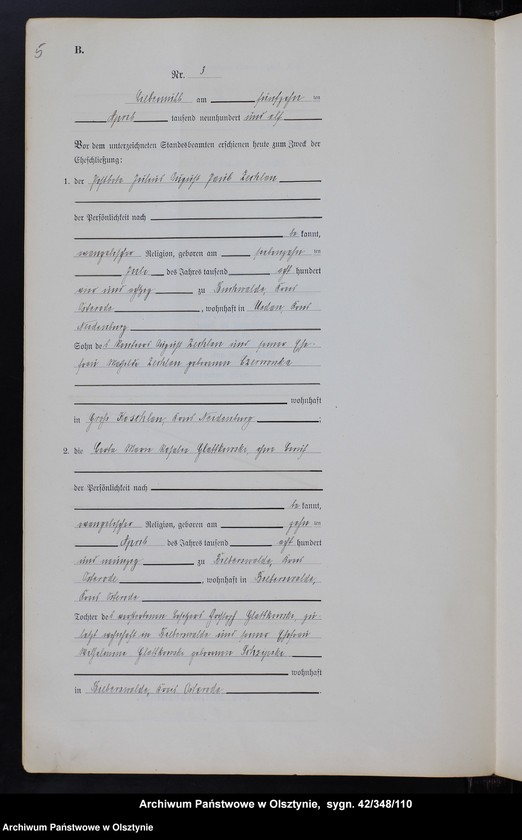 5
B.
Nr. 3
am fünfzehn ten
April tausend neunhundert und elf
Vor dem unterzeichneten Standesbeamten erschienen heute zum Zweck der
Eheschließung:
1. der Postbote Julius August Jacob
der Persönlichkeit nach
be kannt,
evangelischer Religion, geboren am siebenzehn ten
Juli des Jahres tausend acht hundert
und achtzig zu Buchwalde, Kreis
Osterode, wohnhaft in Kreis
Neidenburg
Sohn des August und seiner Ehe-
frau geborenen
wohnhaft
in Groß Koschlau, Kreis Neidenburg;
2. die Maria Glattkowski, ohne Beruf
der Persönlichkeit nach
be kannt,
evangelischer Religion, geboren am zehn ten
April des Jahres tausend acht hundert
und neunzig zu Bieberswalde, Kreis
Osterode, wohnhaft in Bieberswalde,
Kreis Osterode
Tochter des verstorbenen Glattkowski, zu-
letzt wohnhaft in Bieberswalde und seiner Ehefrau
Wilhelmine Glattkowski geborenen
wohnhaft
in Bieberswalde, Kreis Osterode.
Archiwum Państwowe w Olsztynie, sygn. 42/348/110
Archiwum Państwowe w Olsztynie